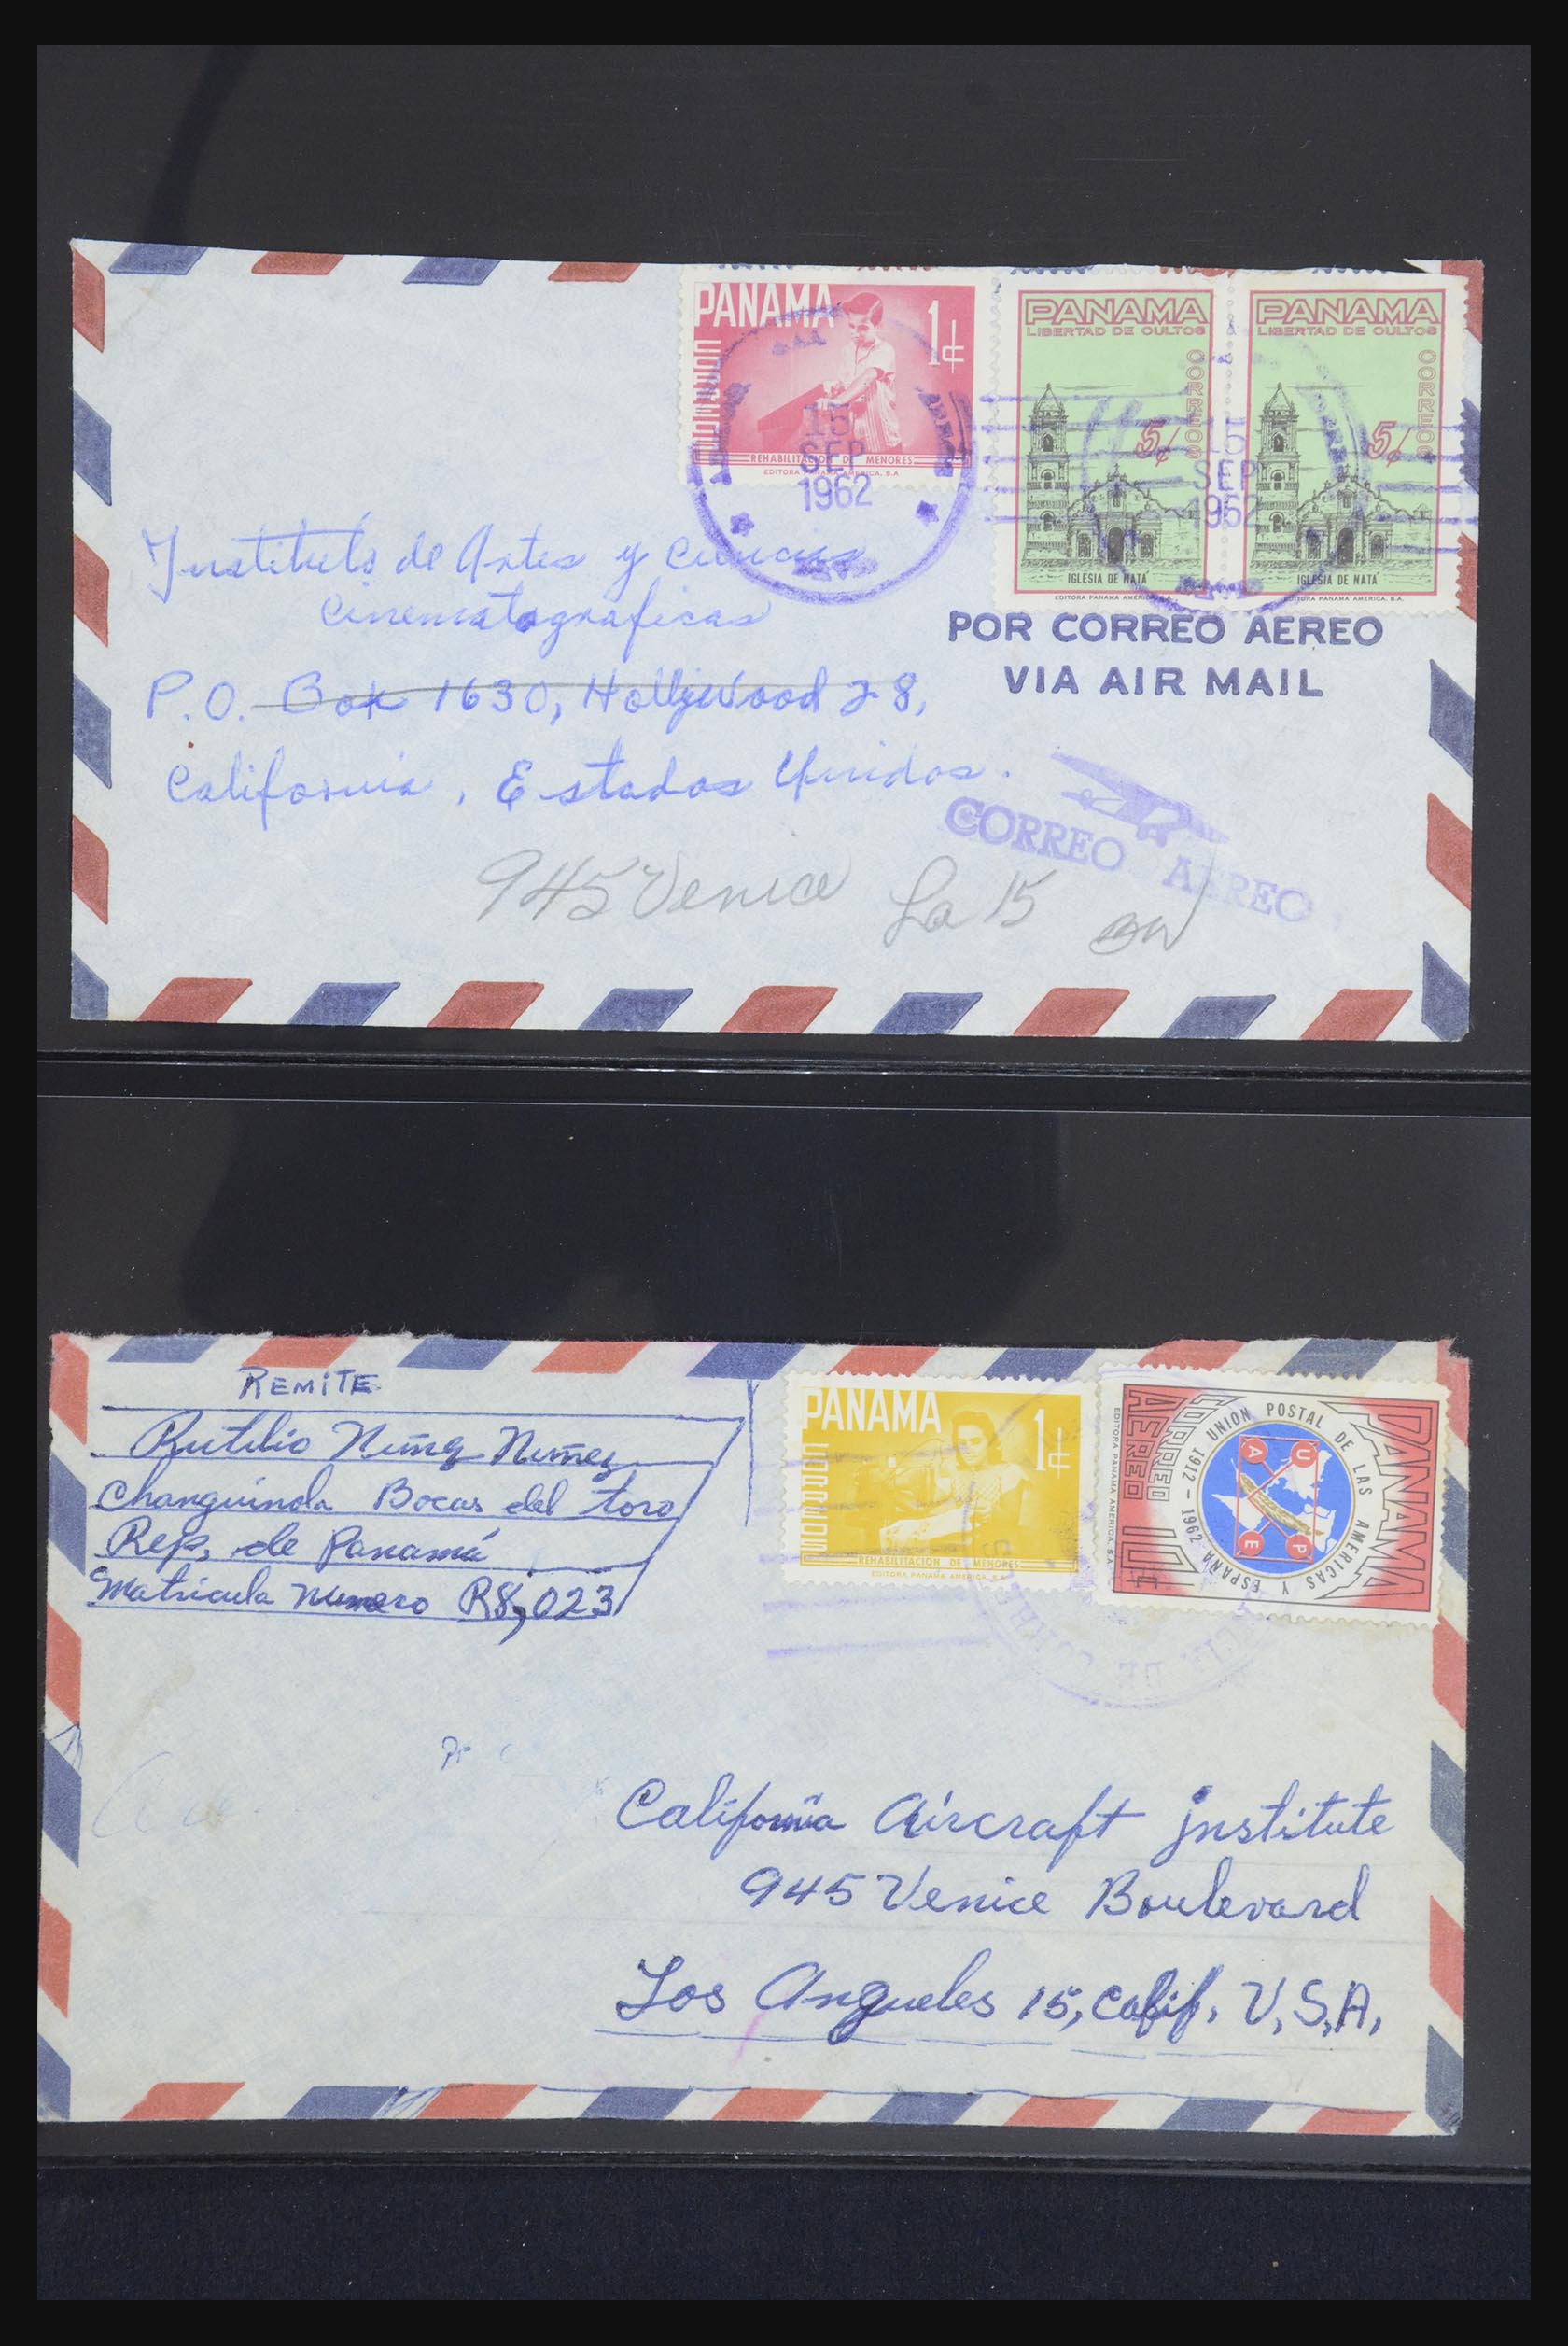 PANAMA
1¢
CORREOS
REHABILITACION DE MENORES
EDITORA PANAMA AMERICA, S.A.
15
SEP
1962
PANAMA
LIBERTAD DE CULTOS
CORREOS
5¢
IGLESIA DE NATA
EDITORA PANAMA AMERICA, S.A.
PANAMA
LIBERTAD DE CULTOS
CORREOS
5¢
IGLESIA DE NATA
EDITORA PANAMA AMERICA, S.A.
15
SEP
1962
POR CORREO AEREO
VIA AIR MAIL
Instituto de Artes y Ciencias
Cinematograficas
P.O. Box 1630, Hollywood 28,
California, Estados Unidos.
CORREO AEREO
945 Venice La 15 BW
REMITE
Rutilio Nuñez Nuñez
Changuinola Bocas del toro
Rep, de Panamá
Matricula Numero R8,023
PANAMA
1¢
CORREOS
REHABILITACION DE MENORES
EDITORA PANAMA AMERICA, S.A.
PANAMA
CORREO
AEREO
10¢
UNION POSTAL DE LAS AMERICAS Y ESPAÑA
1912 - 1962
A U
E P
EDITORA PANAMA AMERICA, S.A.
California Aircraft institute
945 Venice Boulevard
Los Angueles 15, Calif. U,S,A,